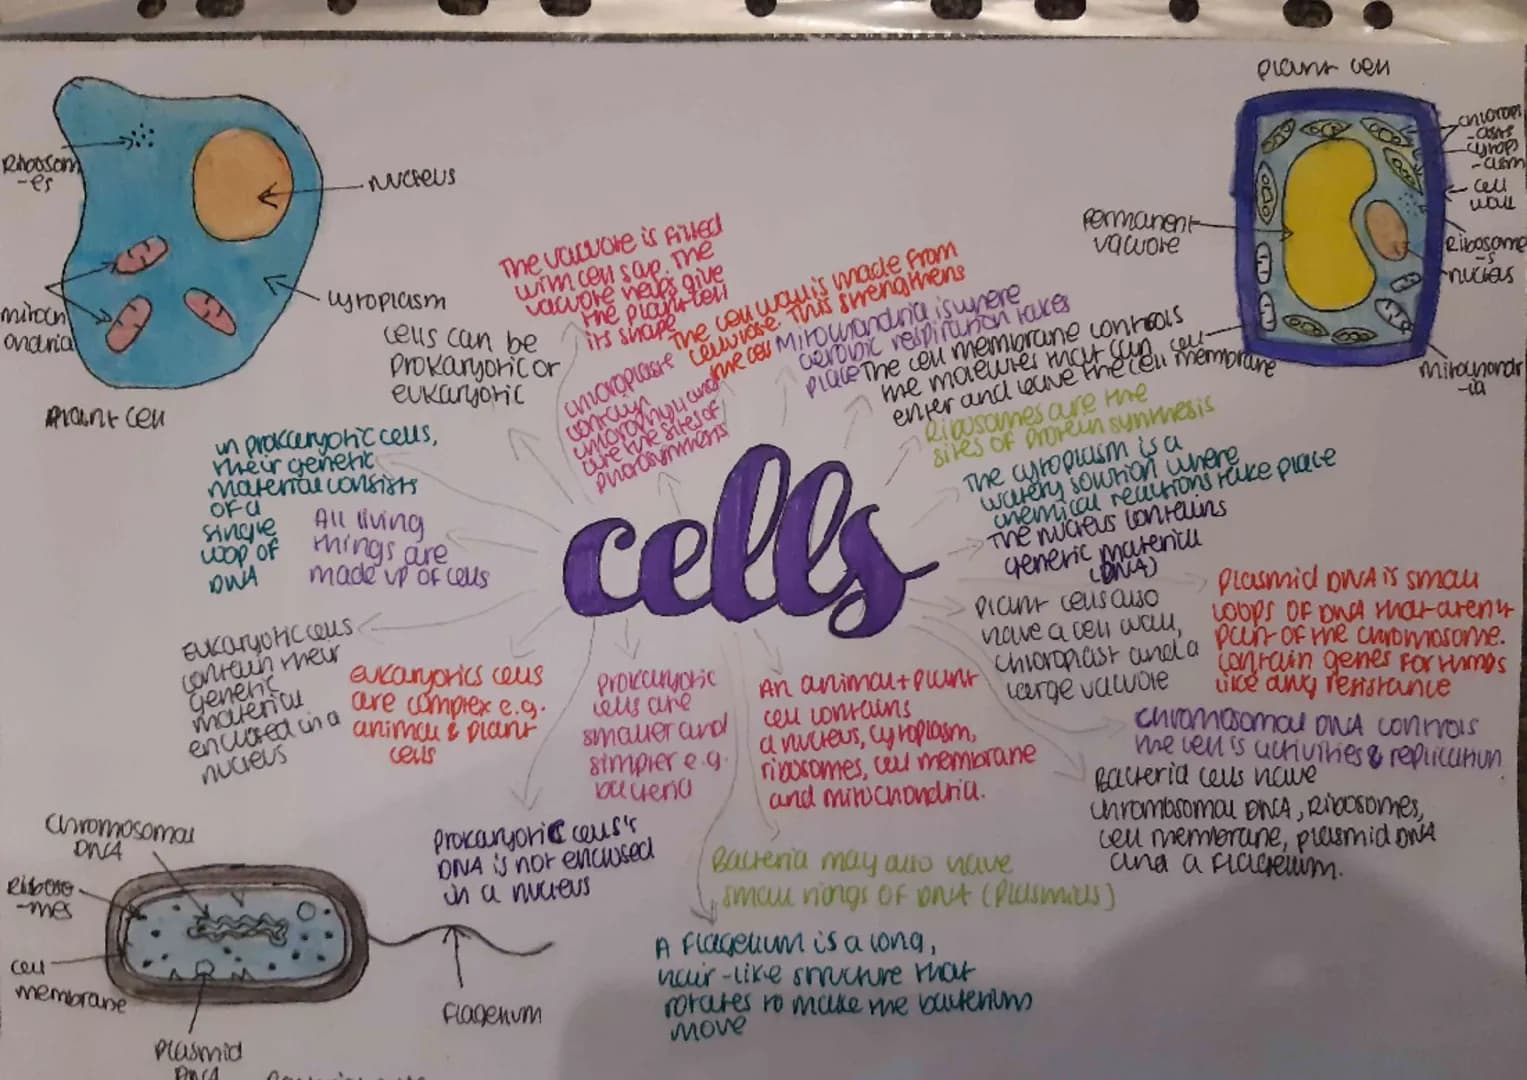 Plant cell
Ribosom
-es
nucleus
mitoch
ondria
cytoplasm
Plant cell
chlorop
-lasts
cytop
-lasm
cell
wall
Ribosome
-s
nucleus
mitochondr
-ia
cell
membrane
Permanent
vacuole
The vacuole is filled
with cell sap. The
vacuole helps give
the plant cell
its shape
The cell wall is made from
cellulose. This strengthens
the cell
Mitochondria is where
aerobic respiration takes
place
The cell membrane controls
the molecules that can
enter and leave the cell
chloroplasts
contain
chlorophyll and
are the sites of
photosynthesis
Ribosomes are the
sites of protein synthesis
cells can be
Prokaryotic or
eukaryotic
in prokaryotic cells,
their genetic
material consists
of a
single
loop of
DNA
All living
things are
made up of cells
cells
The cytoplasm is a
watery solution where
chemical reactions take place
The nucleus contains
genetic material
(DNA)
Plant cells also
have a cell wall,
chloroplast and a
large vacuole
Plasmid DNA is small
loops of DNA that aren't
part of the chromosome.
contain genes for things
like drug resistance
chromosomal DNA controls
the cell's activities & replication
Bacteria cells have
chromosomal DNA, Ribosomes,
cell membrane, plasmid DNA
and a flagellum.
eukaryotic cells
contain their
genetic
material
enclosed in a
nucleus
eukaryotics cells
are complex e.g.
animal & plant
cells
Prokaryotic
cells are
smaller and
simpler e.g.
bacteria
An animal + plant
cell contains
a nucleus, cytoplasm,
ribosomes, cell membrane
and mitochondria.
prokaryotic cells's
DNA is not enclosed
in a nucleus
Bacteria may also have
small rings of DNA (Plasmids)
A flagellum is a long,
hair-like structure that
rotates to make the bacterium
move
chromosomal
DNA
Riboso
-mes
cell
membrane
Plasmid
DNA
flagellum